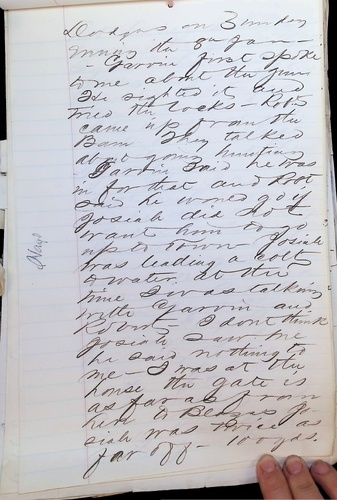 Douglas on Sunday
 the gu gave —
— Garvin first spoke
to me about the gun
He sighted it and
tried the locks — Robt
came up from the
Barn They talked
about going hunting
Garvin said he was
in for that and Robt
said he would go if
Josiah did not
want him to go
up to town Josiah
was leading a colt
to water at the
time I was talking
with Garvin and
Robert — I dont think
Josiah saw me
he said nothing to
me — I was at the
house the gate is
as far as from
here to Jo-
siah was twice as
far off — 100 yds.